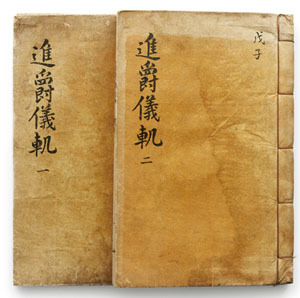 進爵儀軌
一
戊子
進爵儀軌
二